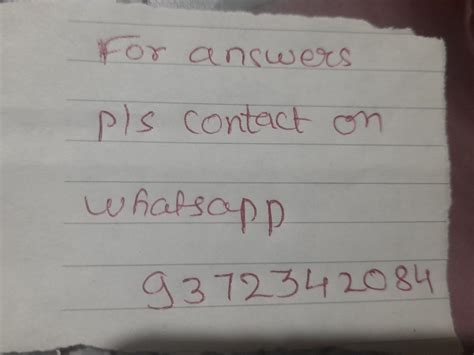 For answers
pls contact on
whatsapp
9372342084